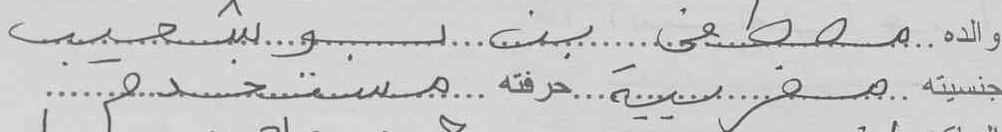 والده مصطفى بن بوشعيب
جنسيته مغربية حرفته مستخدم